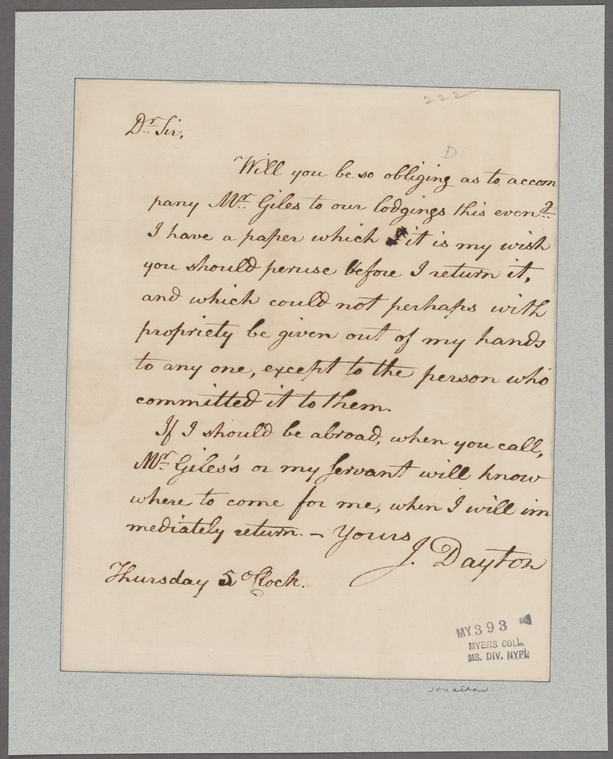 222
D
Dr. Sir,
Will you be so obliging as to accom
pany Mr. Giles to our lodgings this eveng.
I have a paper which it is my wish
you should peruse before I return it,
and which could not perhaps with
propriety be given out of my hands
to any one, except to the person who
committed it to them.
If I should be abroad, when you call,
Mr. Giles's or my servant will know
where to come for me, when I will im
mediately return. — Yours
J. Dayton
Thursday 5 oClock.
MY 393
MYERS COLL.
MS. DIV. NYPL
Jonathan